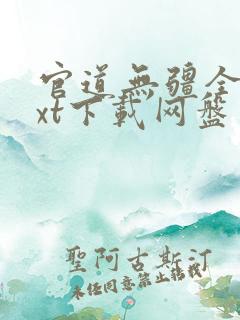 官道無疆全
xt下載网盘
聖阿古斯汀
未经同意禁止转载